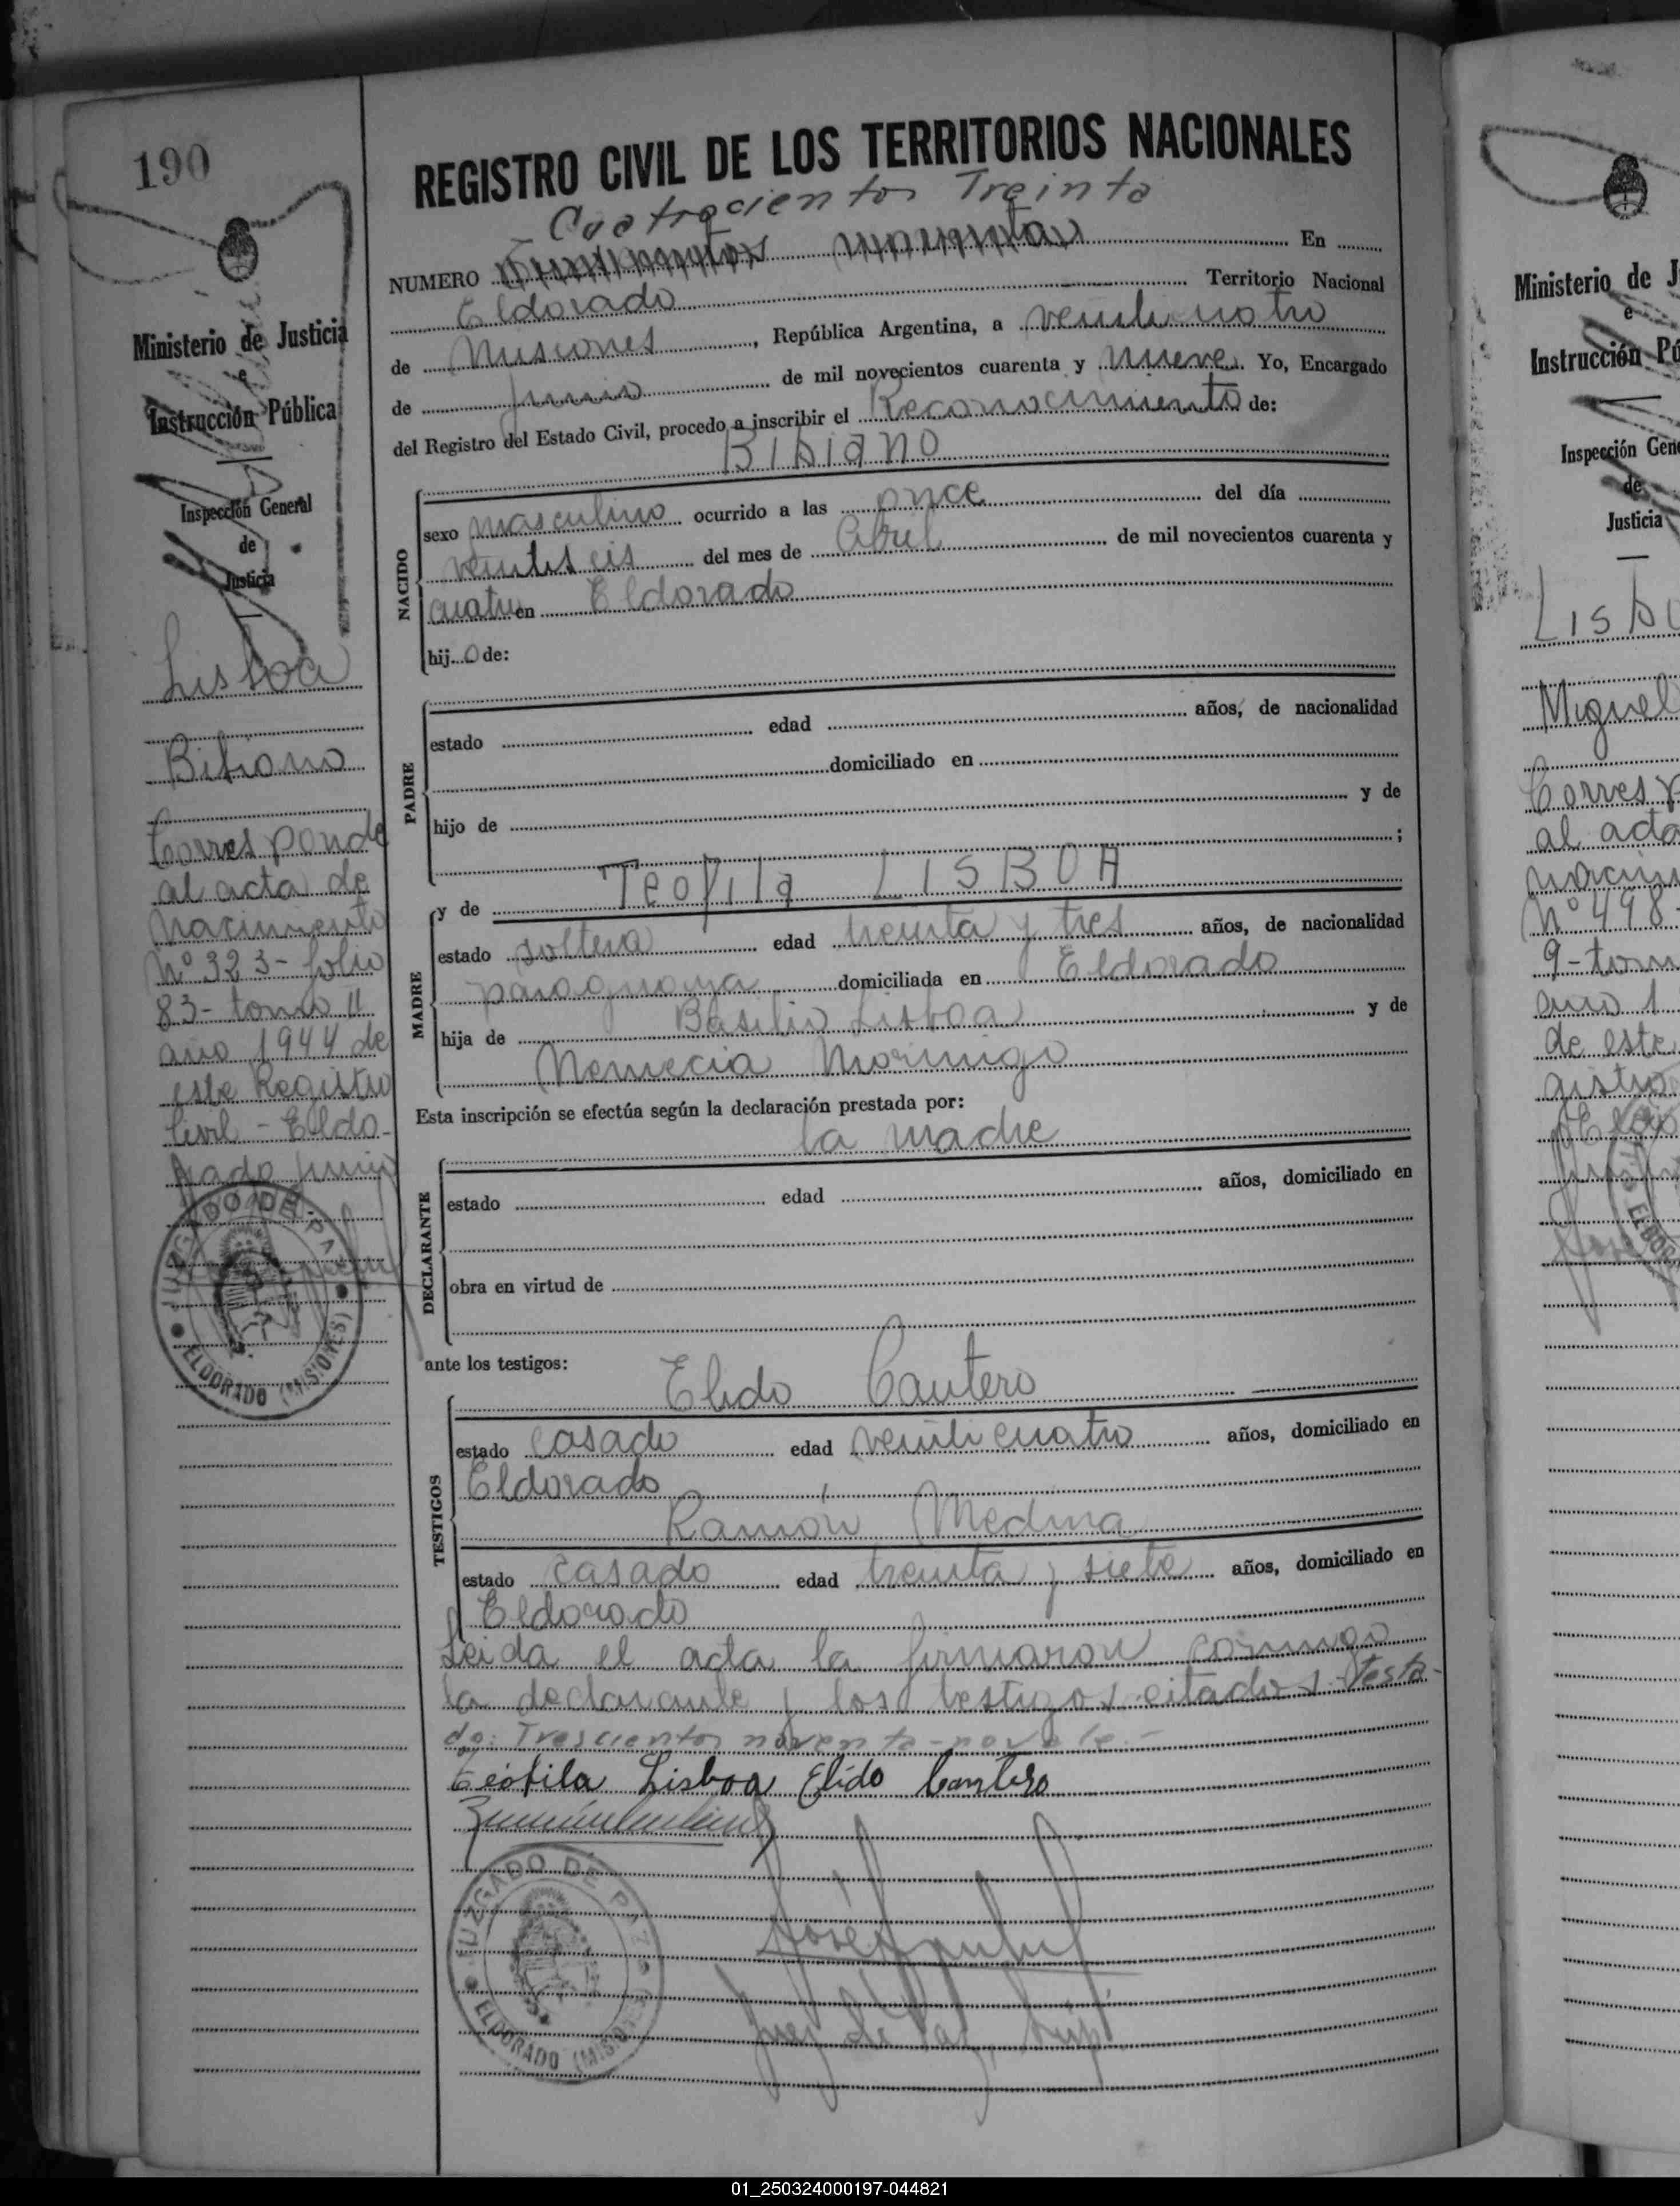 190
Ministerio de Justicia
e
Instrucción Pública
Inspección General
de
Justicia
Lisboa
Bibiano
Corresponde
al acta de
nacimiento
Nº 323- folio
83- tomo II
año 1944 de
este Registro
Civil - Eldo-
rado junio
JUZGADO DE PAZ
ELDORADO (MISIONES)
REGISTRO CIVIL DE LOS TERRITORIOS NACIONALES
Cuatrocientos Treinta
NUMERO En
Eldorado Territorio Nacional
de Misiones, República Argentina, a veinticuatro
de junio de mil novecientos cuarenta y nueve. Yo, Encargado
del Registro del Estado Civil, procedo a inscribir el Reconocimiento de:
Bibiano
NACIDO
sexo masculino ocurrido a las once del día
veintiseis del mes de Abril de mil novecientos cuarenta y
cuatro en Eldorado
hijo de:
PADRE
estado edad años, de nacionalidad
domiciliado en
hijo de y de
;
y de Teofila LISBOA
MADRE
estado soltera edad treinta y tres años, de nacionalidad
paraguaya domiciliada en Eldorado
hija de Basilio Lisboa y de
Nemecia Morinigo
Esta inscripción se efectúa según la declaración prestada por:
la madre
DECLARANTE
estado edad años, domiciliado en
obra en virtud de
ante los testigos:
Elido Cantero
TESTIGOS
estado casado edad veinticuatro años, domiciliado en
Eldorado
Ramón Medina
estado casado edad treinta y siete años, domiciliado en
Eldorado
Leida el acta la firmaron conmigo
la declarante y los testigos citados.-Testa-
do: Trescientos noventa-no vale.-
Teófila Lisboa Elido Cantero
JUZGADO DE PAZ
ELDORADO (MISIONES)
José
Juez de Paz Sup.
Ministerio de J
e
Instrucción Pú
Inspección Gene
de
Justicia
Lisbo
Miguel
Corresp
al acta
nacim
Nº 498-
9- tom
año 1
de este
gistro